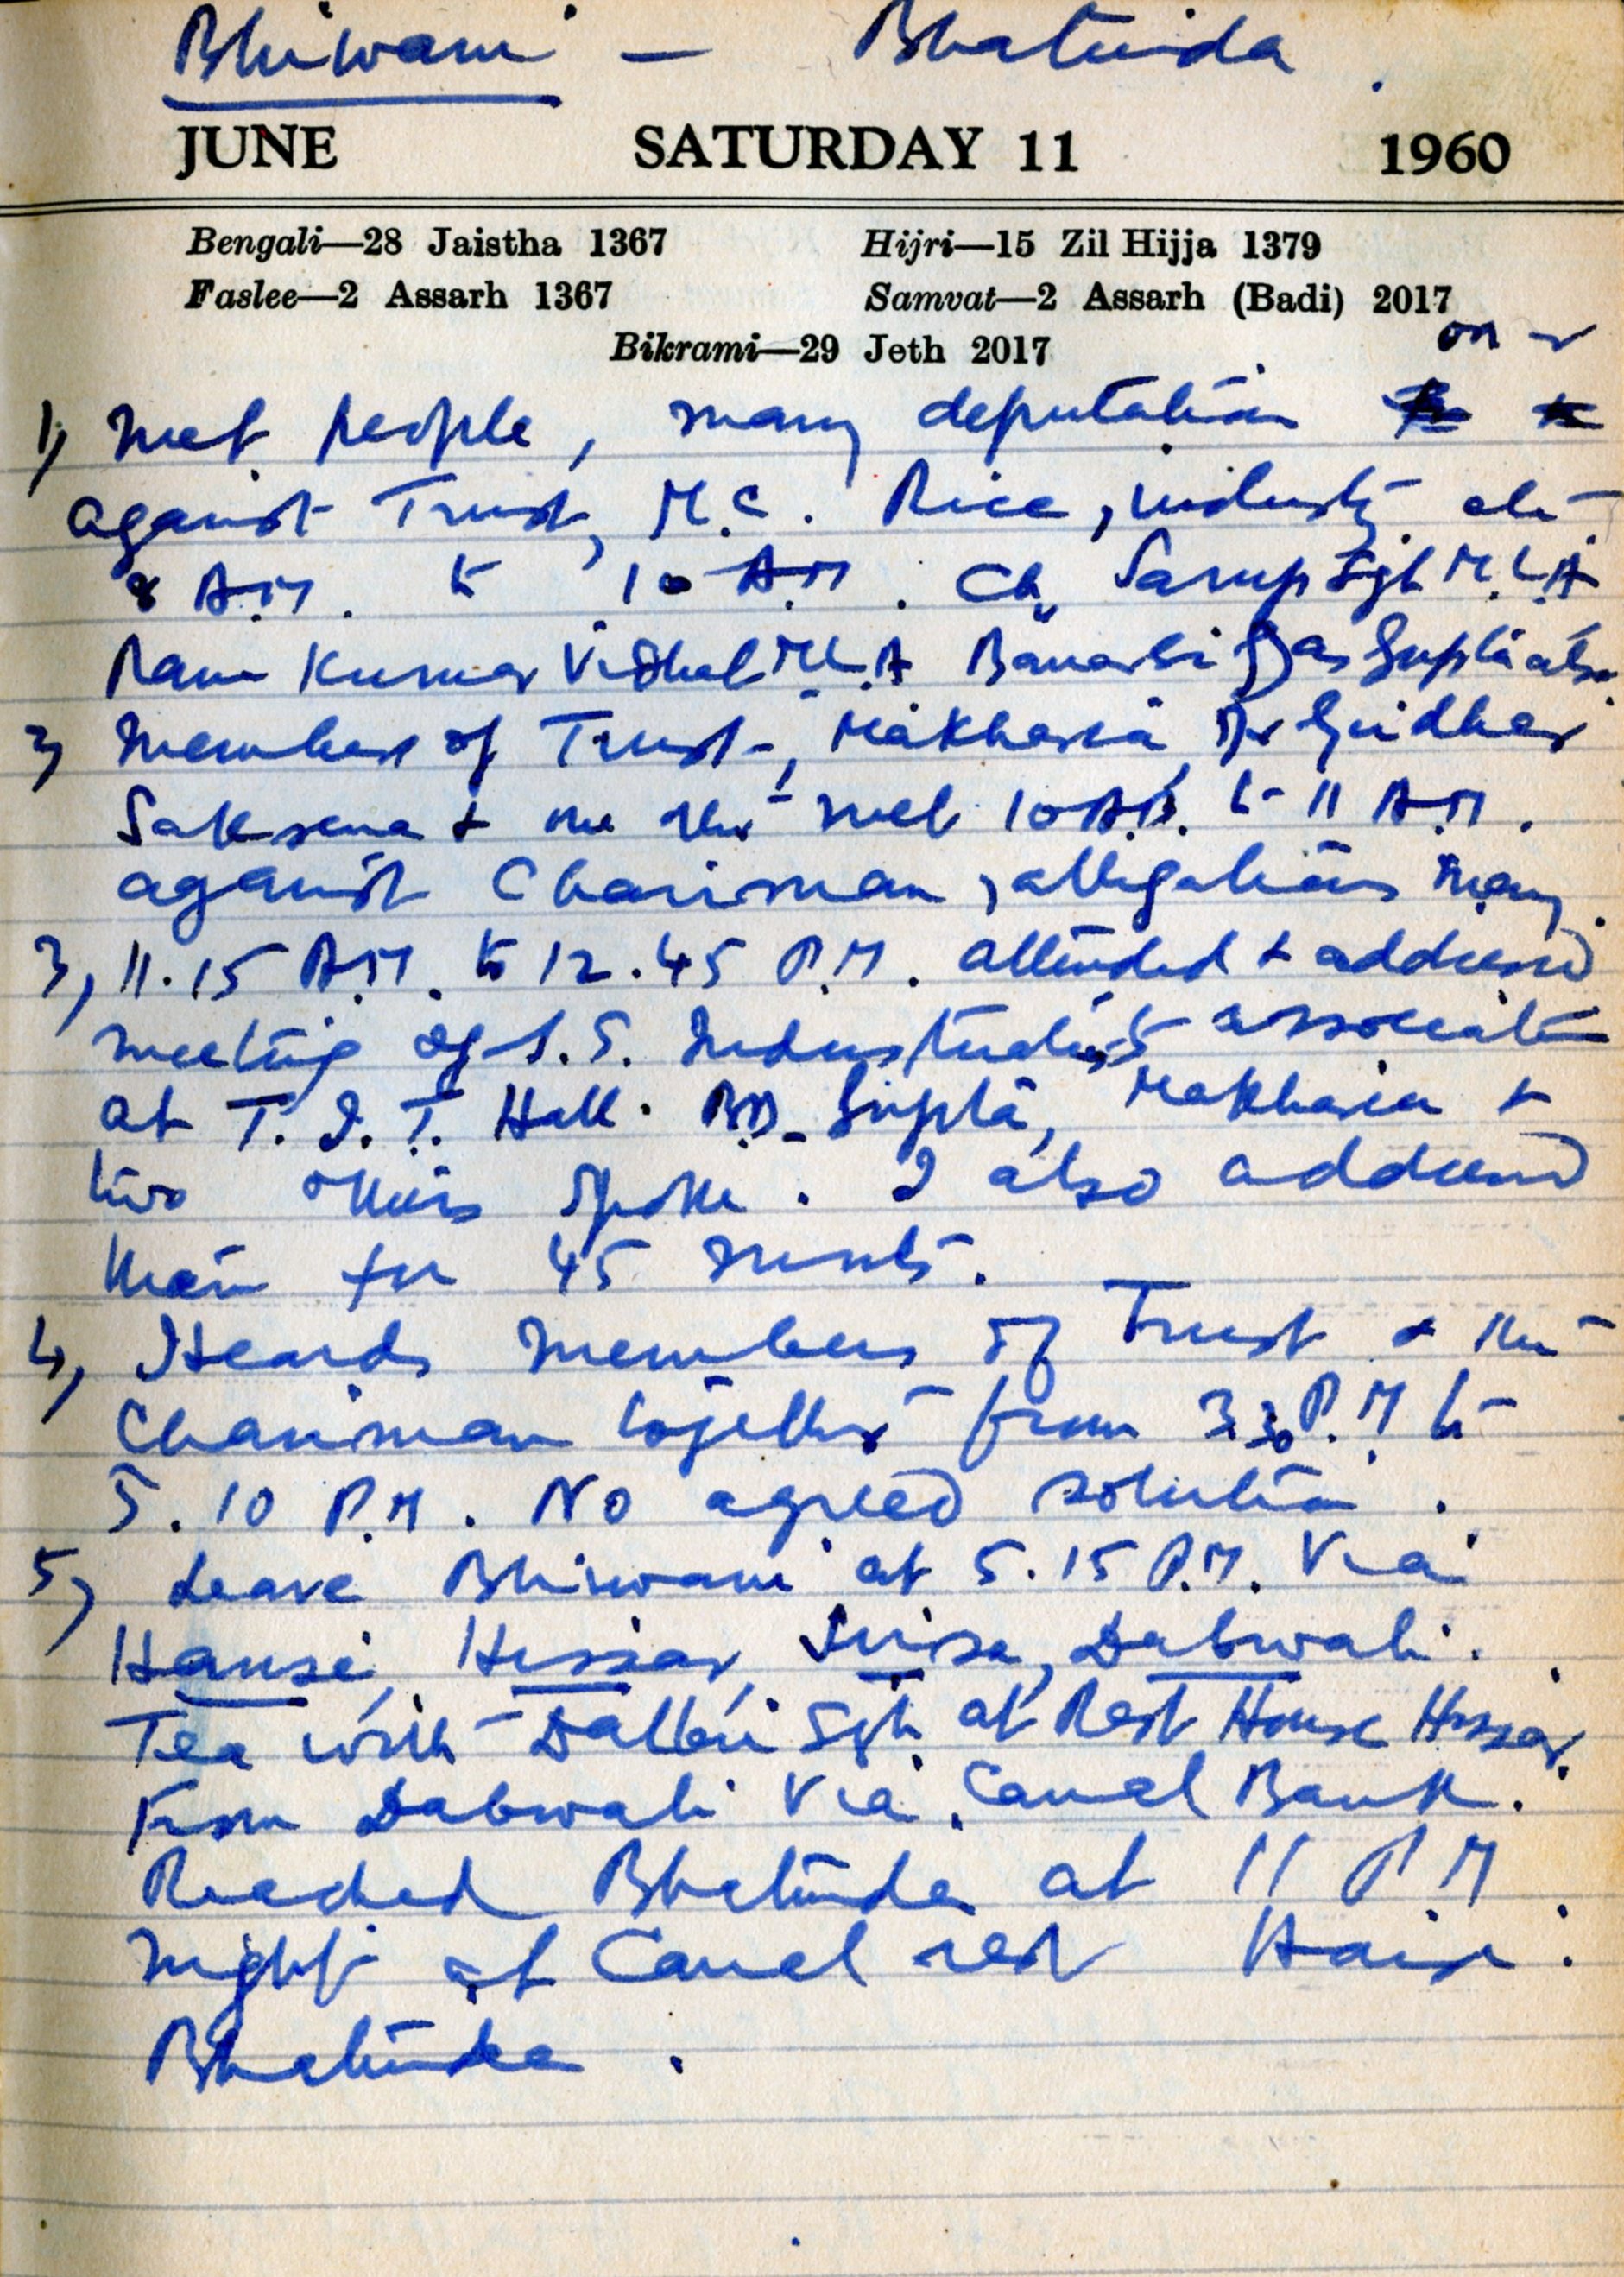 Bhiwani — Bhatinda.
JUNE SATURDAY 11 1960
Bengali—28 Jaistha 1367 Hijri—15 Zil Hijja 1379
Faslee—2 Assarh 1367 Samvat—2 Assarh (Badi) 2017
Bikrami—29 Jeth 2017
on
1, Met people, many deputation
against Trust, M.C. Rice, industry etc
8 A.M. to 10 A.M. Ch. Sarup Sgh M.L.A
Ram Kumar M.L.A Banarsi Das Gupta also.
2, Members of Trust, Makharia, Dr Girdhar
Saksena + one other met 10 A.M. to 11 A.M.
against Chairman, allegations many.
3, 11.15 A.M. to 12.45 P.M. attended + addressed
meeting of S.S. Industrialists association
at T.I.T. Hall. B.D. Gupta, Makharia +
two others spoke. I also addressed
them for 45 minutes.
4, Heards members of Trust & the
Chairman together from 3.30 P.M to
5.10 P.M. No agreed solution.
5, Leave Bhiwani at 5.15 P.M. Via
Hansi, Hissar, Sirsa, Dabwali.
Tea with Dalbir Sgh. at Rest House Hissar.
From Dabwali Via Canal Bank.
Reached Bhatinda at 11 P M.
Night at Canal rest House.
Bhatinda.